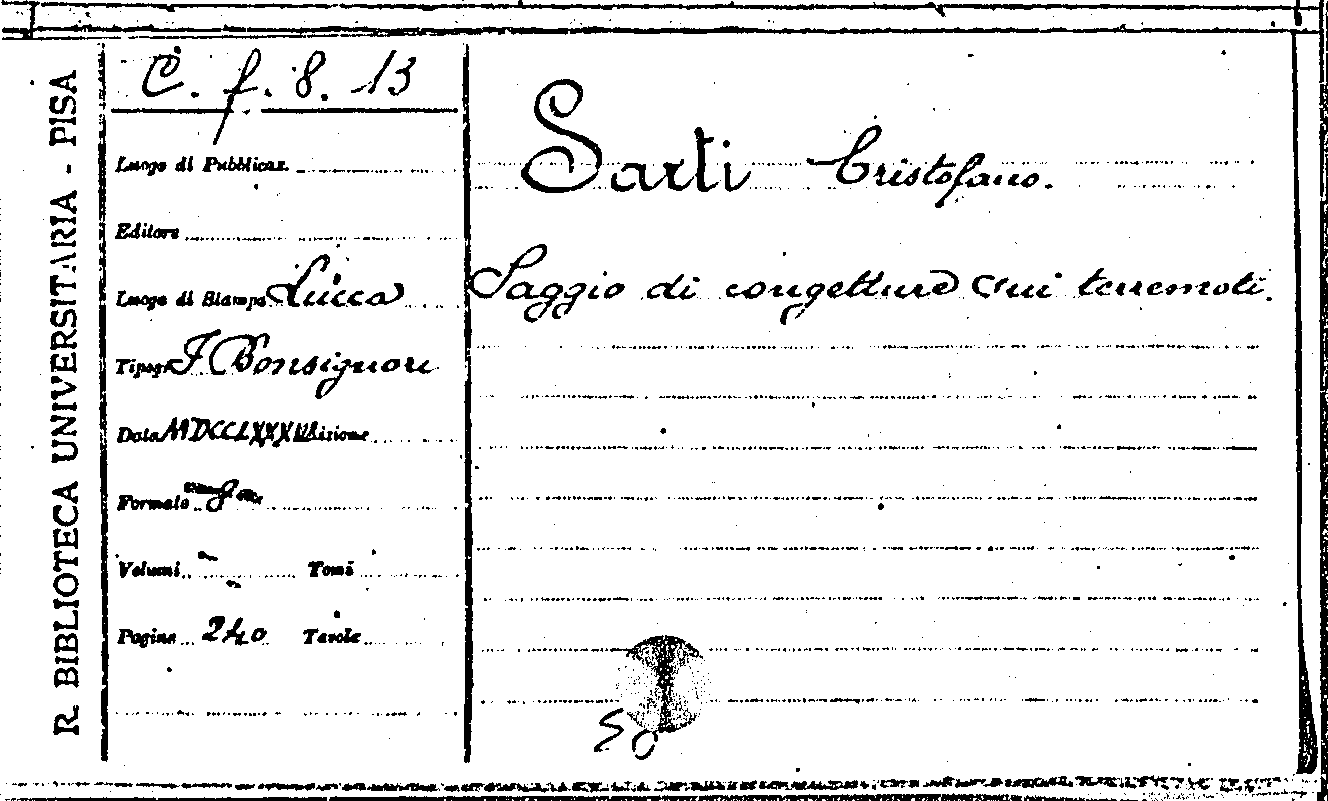 R. BIBLIOTECA UNIVERSITARIA - PISA
C. f. 8. 13
Luogo di Pubblicaz.
Editore
Luogo di Stampa Lucca
Tipogr. F Bonsignori
Data MDCCLXXXIII Edizione
Formato 8
Volumi Tomi
Pagine 240 Tavole
Sarti Cristofano.
Saggio di congetture sui terremoti.